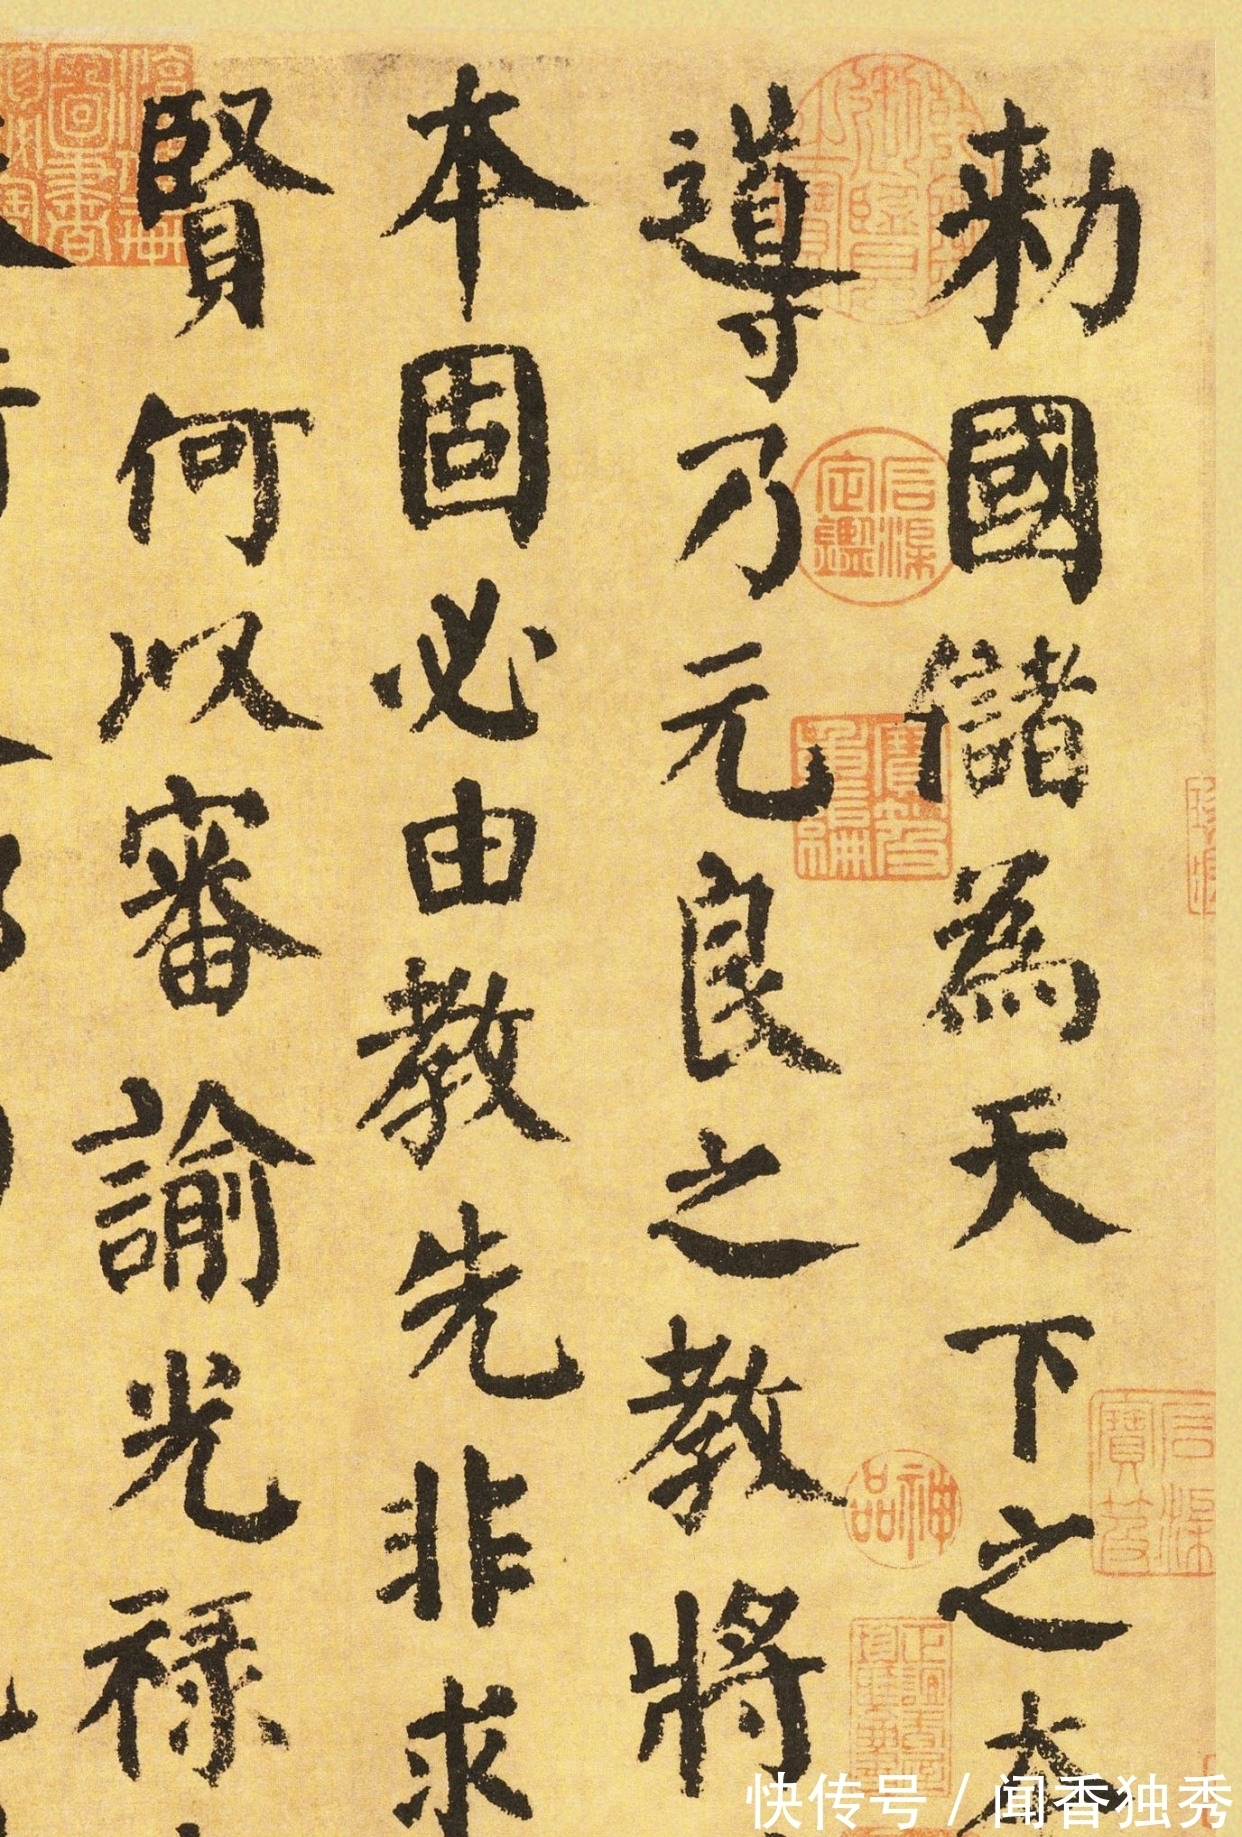 勅國儲為天下之本
導乃元良之教將
本固必由教先非求
賢何以審諭光禄
神品
快传号 / 闻香独秀